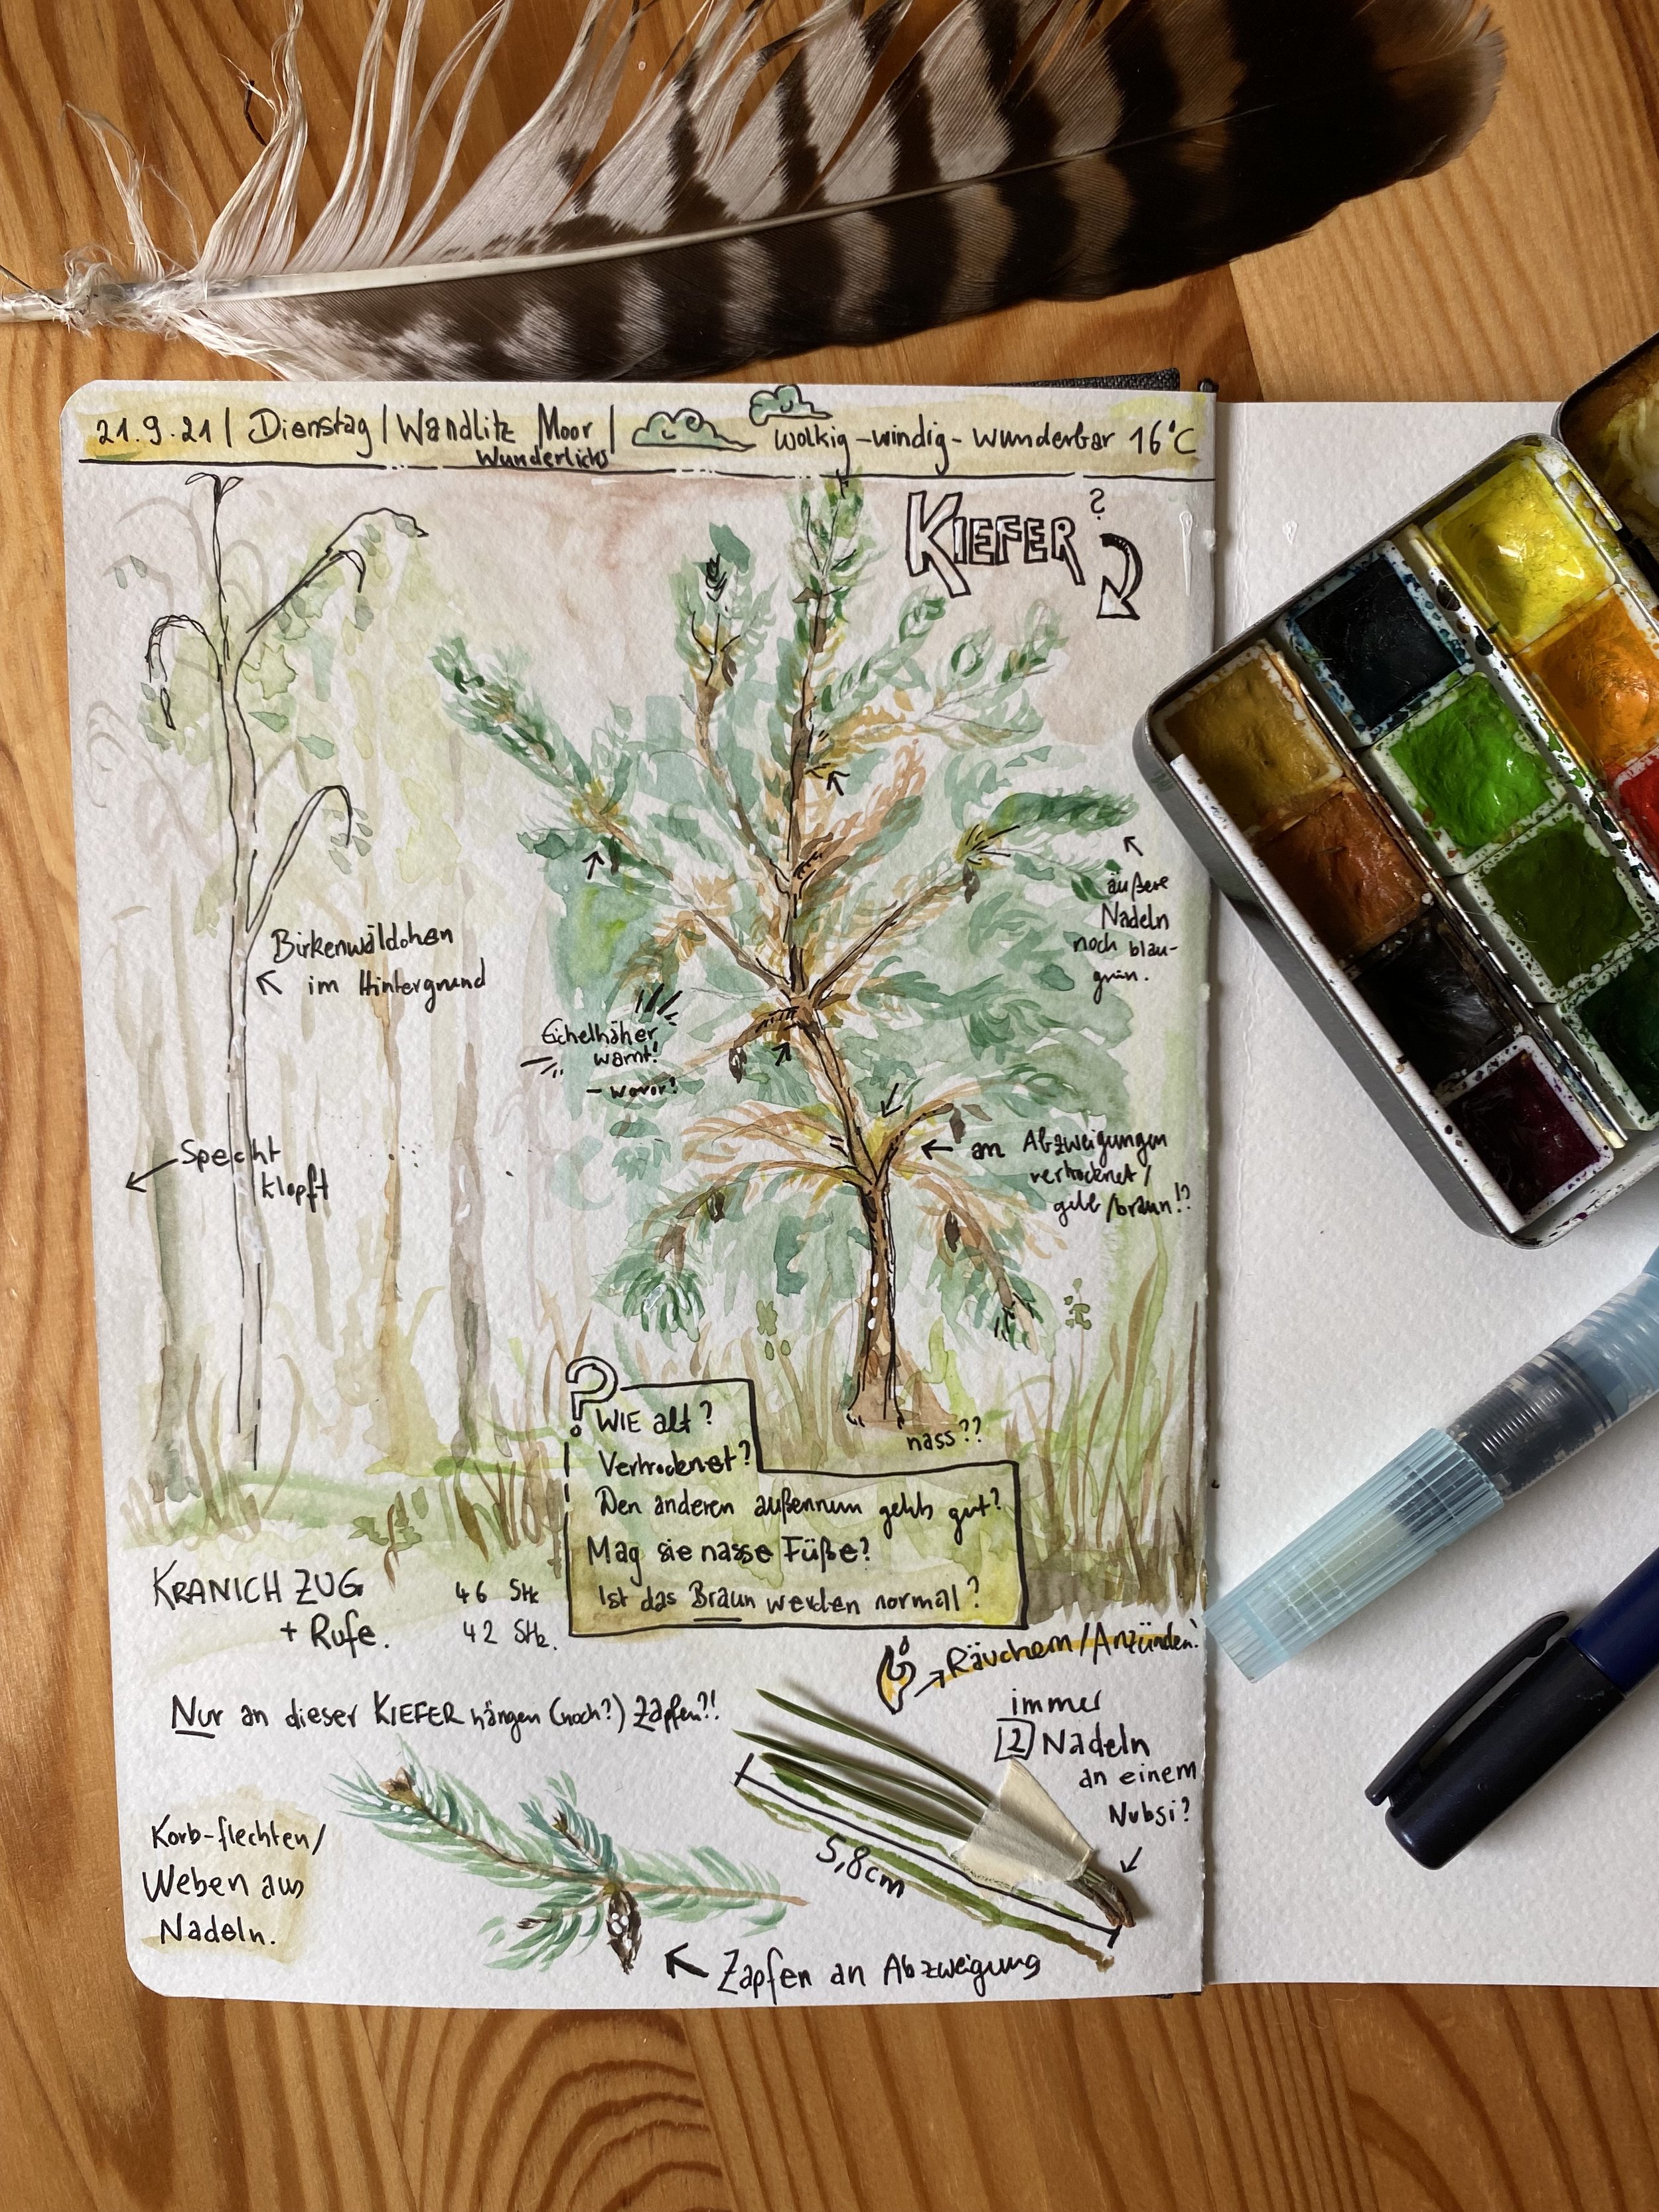 21.9.21 | Dienstag | Wandlitz Moor | wolkig-windig-wunderbar 16°C
Wunderlichs
KIEFER?
äußere
Nadeln
noch blau-
grün.
Birkenwäldchen
im Hintergrund
Eichelhäher
warnt!
- wovor!
Specht
klopft
an Abzweigungen
vertrocknet/
gelb/braun!?
nass??
?
WIE alt?
Vertrocknet?
Den anderen außenrum gehts gut?
Mag sie nasse Füße?
Ist das Braun werden normal?
KRANICH ZUG 46 Stk
+ Rufe. 42 Stk.
Räuchern/Anzünden!
Nur an dieser KIEFER hängen (noch?) Zapfen?!
immer
2 Nadeln
an einem
Nubsi?
5,8cm
Korb-flechten/
Weben aus
Nadeln.
Zapfen an Abzweigung